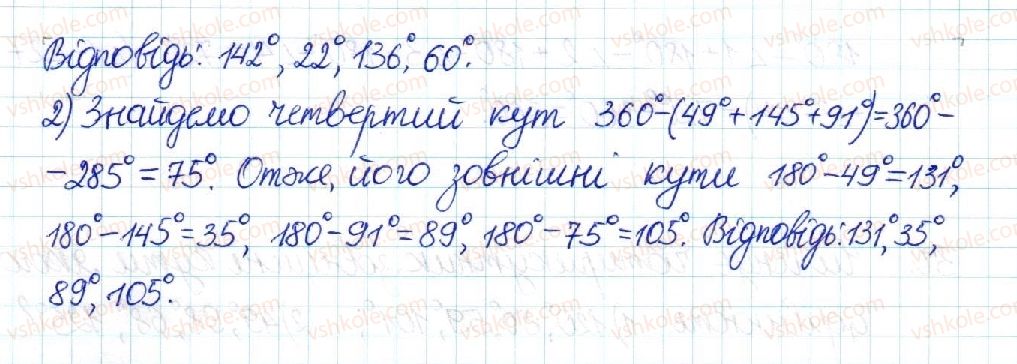 Відповідь: 142°, 22°, 136°, 60°.
2) Знайдемо четвертий кут 360°-(49°+145°+91°)=360°-
-285°=75°. Отже, його зовнішні кути 180°-49°=131°,
180°-145°=35°, 180°-91°=89°, 180°-75°=105°. Відповідь: 131°, 35°,
89°, 105°.